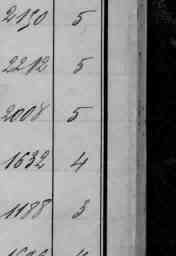 2190 5
2212 5
2008 5
1632 4
1188 3